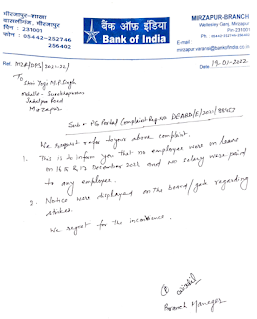 मीरजापुर-शाखा
वासलीगंज, मीरजापुर
पिन : 231001
फोन : 05442-252746
256402
बैंक ऑफ़ इंडिया
Bank of India
MIRZAPUR-BRANCH
Wellesley Ganj, Mirzapur
Pin-231001
Ph. 05442-252746
256402
E-mail:
mirzapur.varanasi@bankofindia.co.in
Ref. MZP/OPS/2021-22/
Date 19-01-2022
To
Shri Yogi M.P. Singh
Mohalla - Surekhapuram
Jabalpur Road
Mirzapur
Sub :- PG Portal Complaint Reg No. DEABD/E/2021/
We request refer to your above complaint.
1. This is to inform you that no employee were on leave
on 16 & 17 December 2021 and no salary were paid
to any employee.
2. Notice were displayed on the board/gate regarding
strike.
We regret for the inconvenience.
Branch Manager